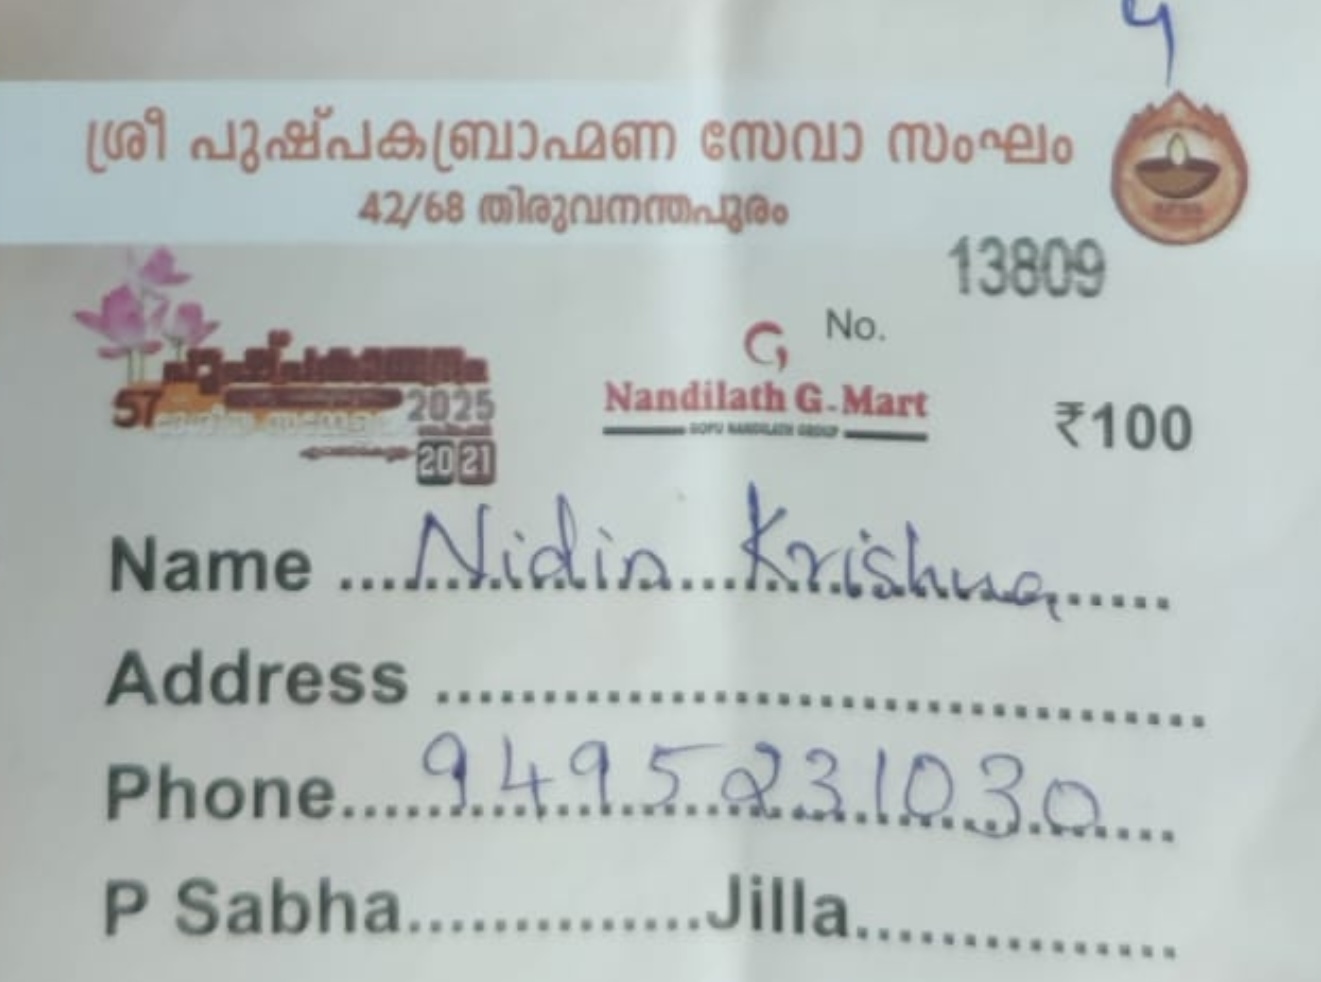 4
ശ്രീ പുഷ്പകബ്രാഹ്മണ സേവാ സംഘം
42/68 തിരുവനന്തപുരം
13809
No.
57
2025
20 21
Nandilath G-Mart
GOPU NANDILATH GROUP
₹100
Name ....Nidin Krishna.....
Address ..............................
Phone....9495231030....
P Sabha..............Jilla...............